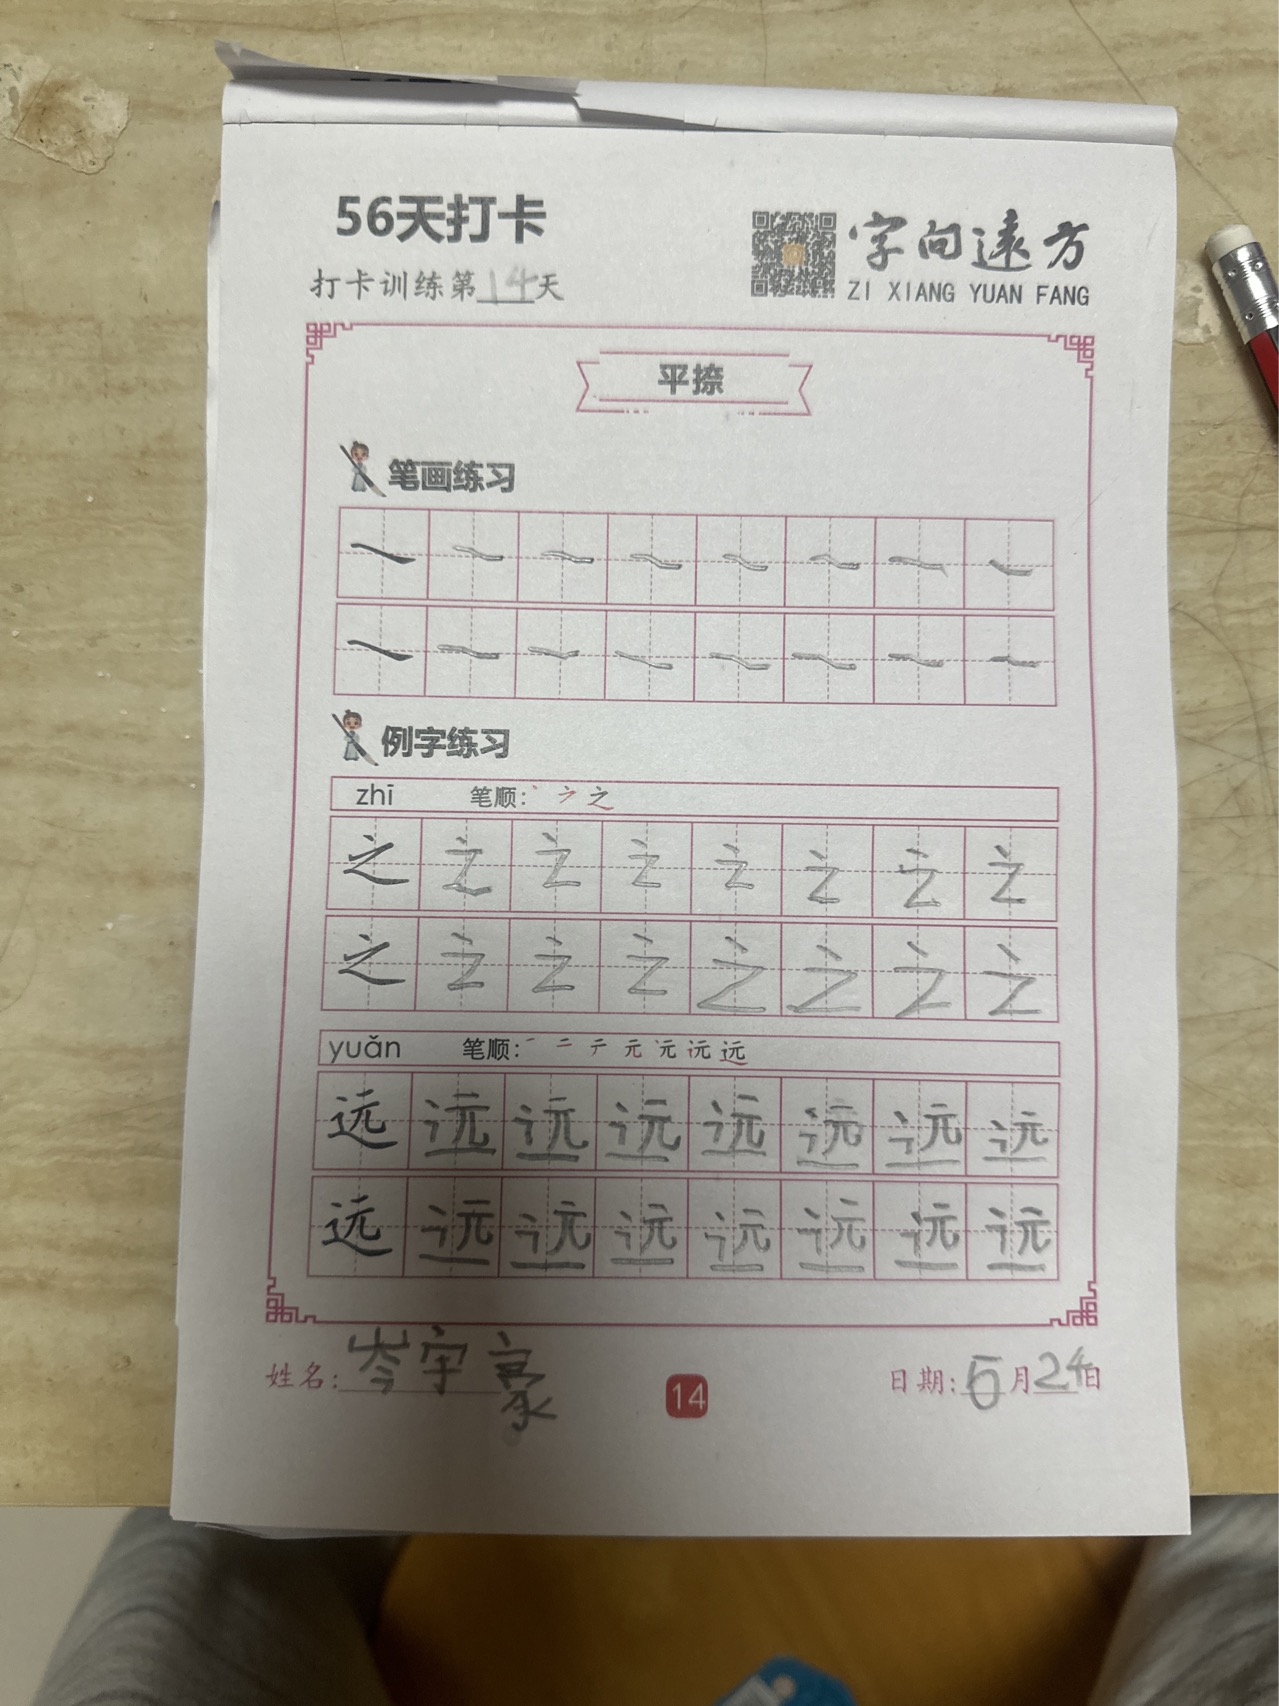 56天打卡
打卡训练第14天
字向远方
ZI XIANG YUAN FANG
平捺
笔画练习
例字练习
zhī 笔顺: 丶 ㇇ 之
之 之 之 之 之 之 之 之
之 之 之 之 之 之 之 之
yuǎn 笔顺: 一 二 テ 元 元 沅 远
远 远 远 远 远 远 远 远
远 远 远 远 远 远 远 远
姓名: 岑宇豪
14
日期: 5月24日